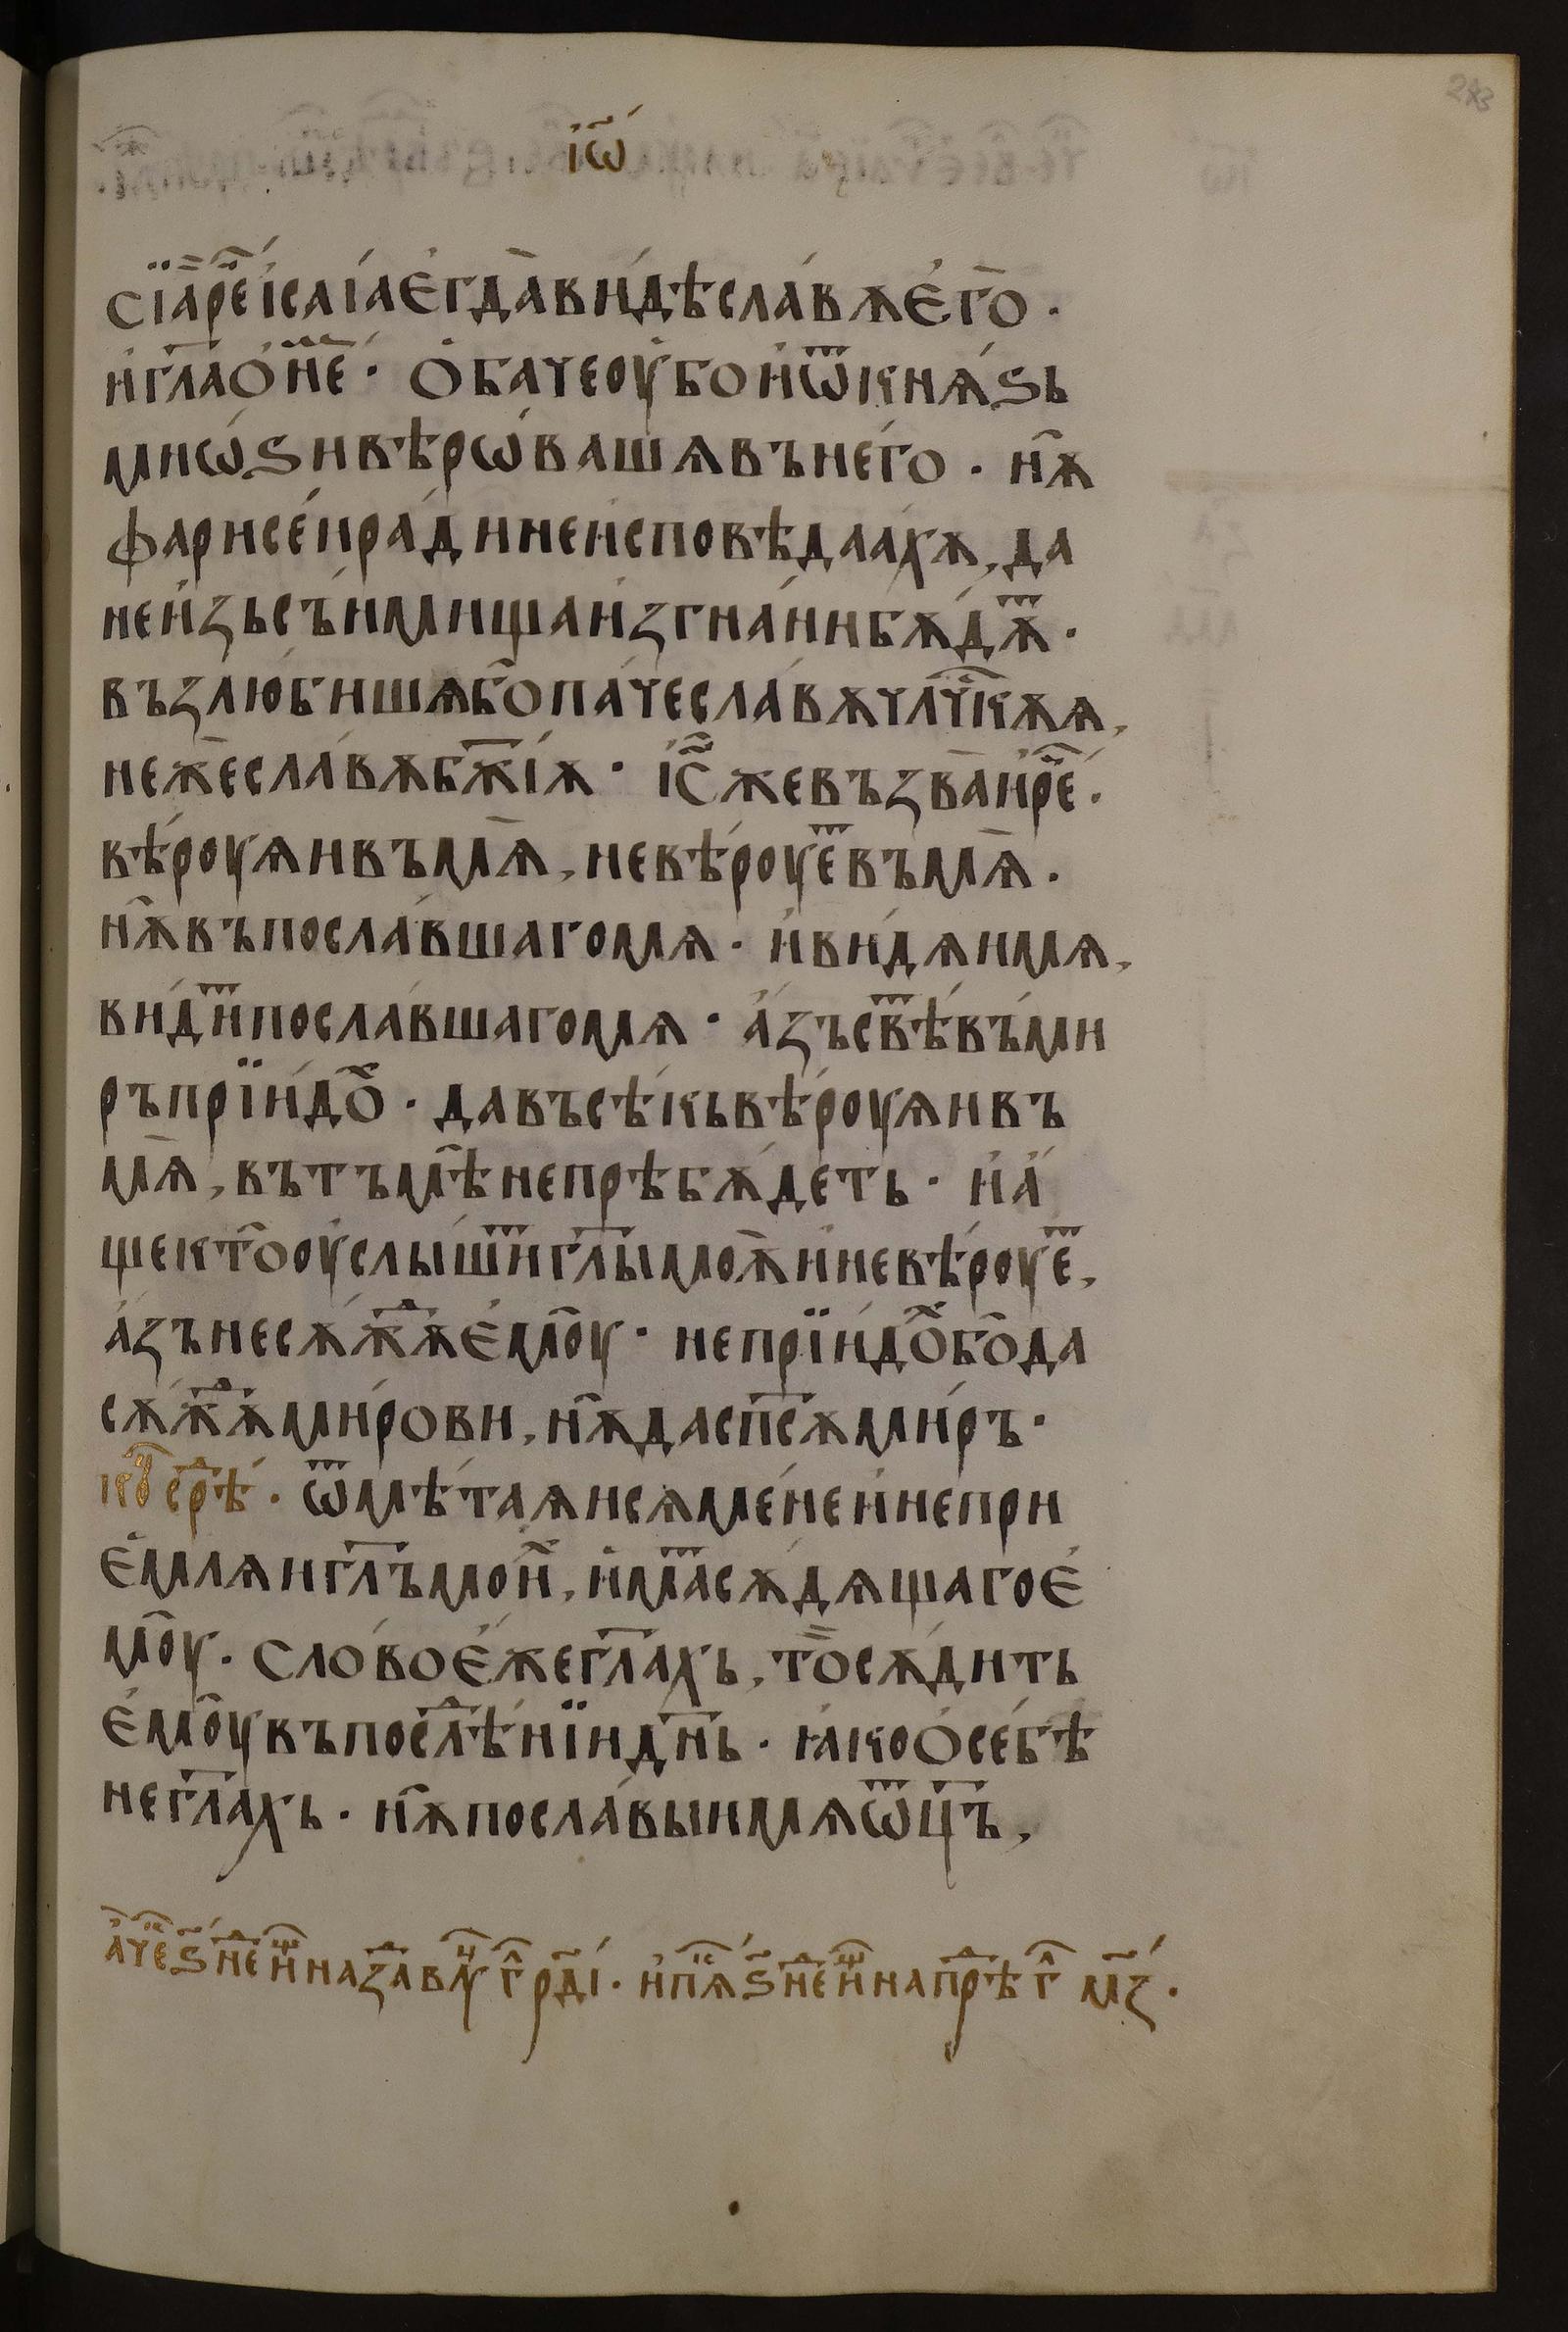 і҆ѡ҃
Сїа̀ рⷱ҇е і҆са́їа є҆гда̀ ви́дѣ сла́вѫ є҆го̀.
и҆ гл҃а ѻ҆ не́мь· ѻ҆ба́че оу҆бо и҆ ѿ кнѧ́ѕь
мнѡ́ѕи вѣ́рѡвашѧ въ него̀. нѫ̀
фарисе́и ра́ди не и҆сповѣ́даахѫ, да
не и҆зь съ́нмища и҆згна́ни бѫ́дѫⷮ.
възлю́бишѧ бо̀ па́че сла́вѫ чл҃чⷭ҇кѫѧ,
нежѐ сла́вѫ бж҃їѫ· і҆с҃ же възва̀ и҆ рⷱ҇е.
вѣ́роуѧи въ мѧ̀, не вѣ́роуеⷮ въ мѧ̀.
нѫ̀ въ посла́вшаго мѧ· и҆ ви́дѧи мѧ,
ви́диⷮ посла́вшаго мѧ· а҆́зъ свѣⷮ въ́ ми
ръ прїидоⷯ· да въсѣ́кь вѣ́роуѧи въ
мѧ̀, въ тъмѣ̀ не прѣбѫ́деть· и҆ а҆́
ще кто̀ оу҆слы́шиⷮ гл҃ы моѫ̀ и҆ не вѣ́роуеⷮ,
а҆́зъ не сѫ́жⷣѫ є҆моу̀· не прїидоⷯ бо̀ да
сѫ́жⷣѫ ми́рови, нѫ̀ да сп҃сѫ ми́ръ·
коⷩ҇ срⷣѣ. ѿмѣ́таѧисѧ мене́ и҆ не при
є҆млѧи гл҃ъ мои́хь, и҆́маⷮ сѫ́дѧщаго є҆
моу̀. Сло́во є҆́же гл҃ахь, то̀ сѫ́дить
є҆моу̀ въ послⷣѣ́нїи дн҃ь· ꙗ҆́ко ѻ҆ себѣ̀
не гл҃ахь· нѫ̀ посла́выи мѧ ѿц҃ъ,